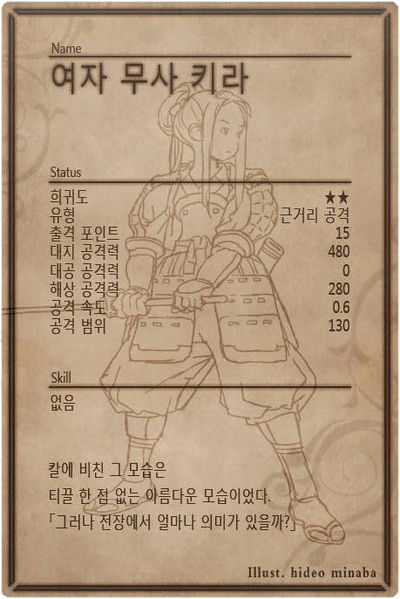 Name
여자 무사 키라
Status
희귀도 ★★
유형 근거리 공격
출격 포인트 15
대지 공격력 480
대공 공격력 0
해상 공격력 280
공격 속도 0.6
공격 범위 130
Skill
없음
칼에 비친 그 모습은
티끌 한 점 없는 아름다운 모습이었다.
「그러나 전장에서 얼마나 의미가 있을까?」
Illust. hideo minaba